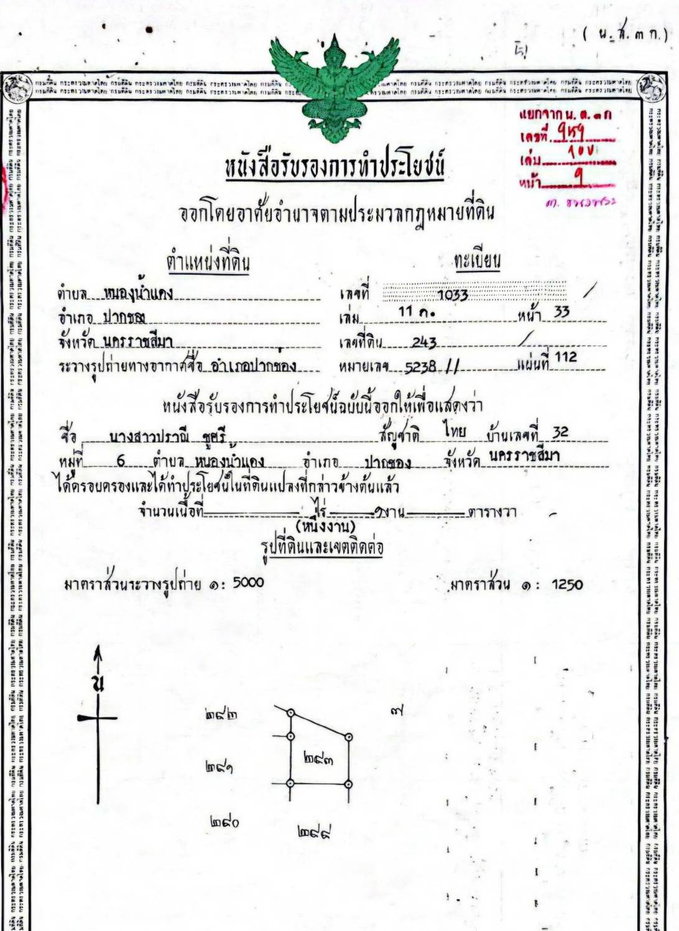 ( น.ส.๓ ก.)
แยกจาก น.ส.๓ก
เลขที่
เล่ม
หน้า
หนังสือรับรองการทำประโยชน์
ออกโดยอาศัยอำนาจตามประมวลกฎหมายที่ดิน
ตำแหน่งที่ดิน ทะเบียน
ตำบล หนองน้ำแดง เลขที่ 1033
อำเภอ ปากช่อง เล่ม 11 ก. หน้า 33
จังหวัด นครราชสีมา เลขที่ดิน 243
ระวางรูปถ่ายทางอากาศชื่อ อำเภอปากช่อง หมายเลข 5238 II แผ่นที่ 112
หนังสือรับรองการทำประโยชน์ฉบับนี้ออกให้เพื่อแสดงว่า
ชื่อ นางสาวปราณี ชูศรี สัญชาติ ไทย บ้านเลขที่ 32
หมู่ที่ 6 ตำบล หนองน้ำแดง อำเภอ ปากช่อง จังหวัด นครราชสีมา
ได้ครอบครองและได้ทำประโยชน์ในที่ดินแปลงที่กล่าวข้างต้นแล้ว
จำนวนเนื้อที่ - ไร่ ๑ งาน - ตารางวา
(หนึ่งงาน)
รูปที่ดินและเขตติดต่อ
มาตราส่วนระวางรูปถ่าย ๑: 5000 มาตราส่วน ๑: 1250
น
๒๔๒ ๗
๒๔๑ ๒๔๓
๒๔๐ ๒๔๔